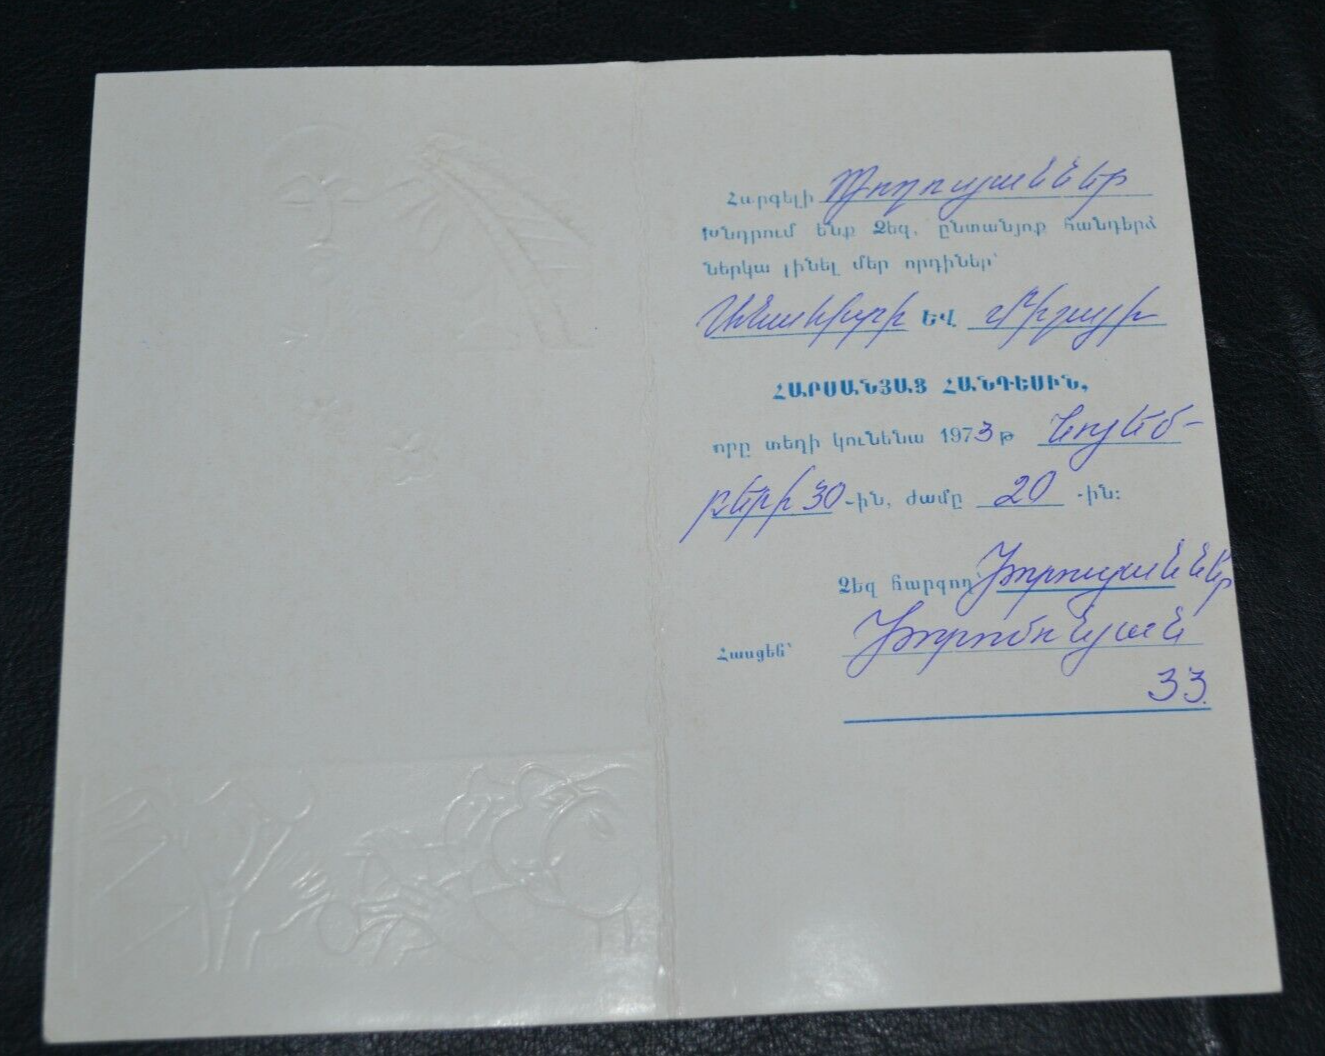 Հարգելի Թորոսյաններ
Խնդրում ենք Ձեզ, ընտանյոք հանդերձ
ներկա լինել մեր որդիներ՝
ԵՎ Միշայի
ՀԱՐՍԱՆՅԱՑ ՀԱՆԴԵՍԻՆ,
որը տեղի կունենա 1973 թ Նոյեմ-
բերի 30-ին, ժամը 20-ին։
Ձեզ հարգող՝
Հասցեն՝
33.